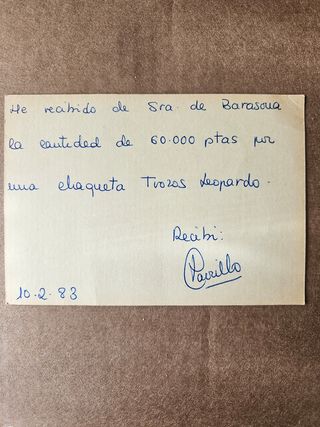 He recibido de Sra. de Barasona
la cantidad de 60.000 ptas por
una chaqueta Trozos Leopardo.
Recibí:
10.2.83